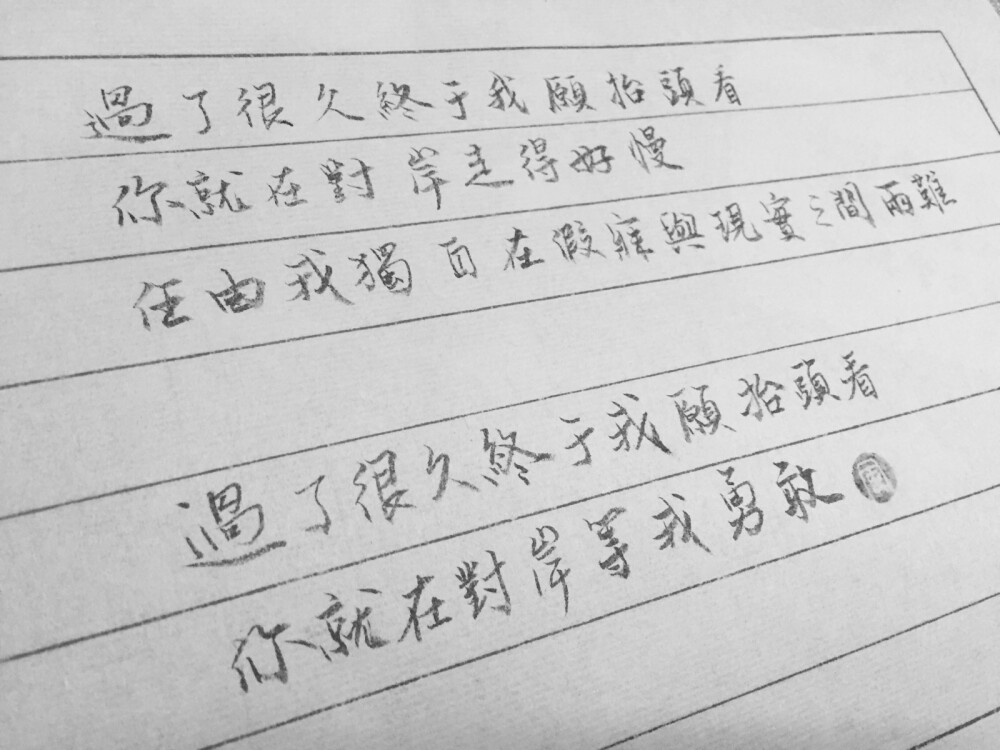 過了很久終于我願抬頭看
你就在對岸走得好慢
任由我獨自在假寐與現實之間兩難
過了很久終于我願抬頭看
你就在對岸等我勇敢